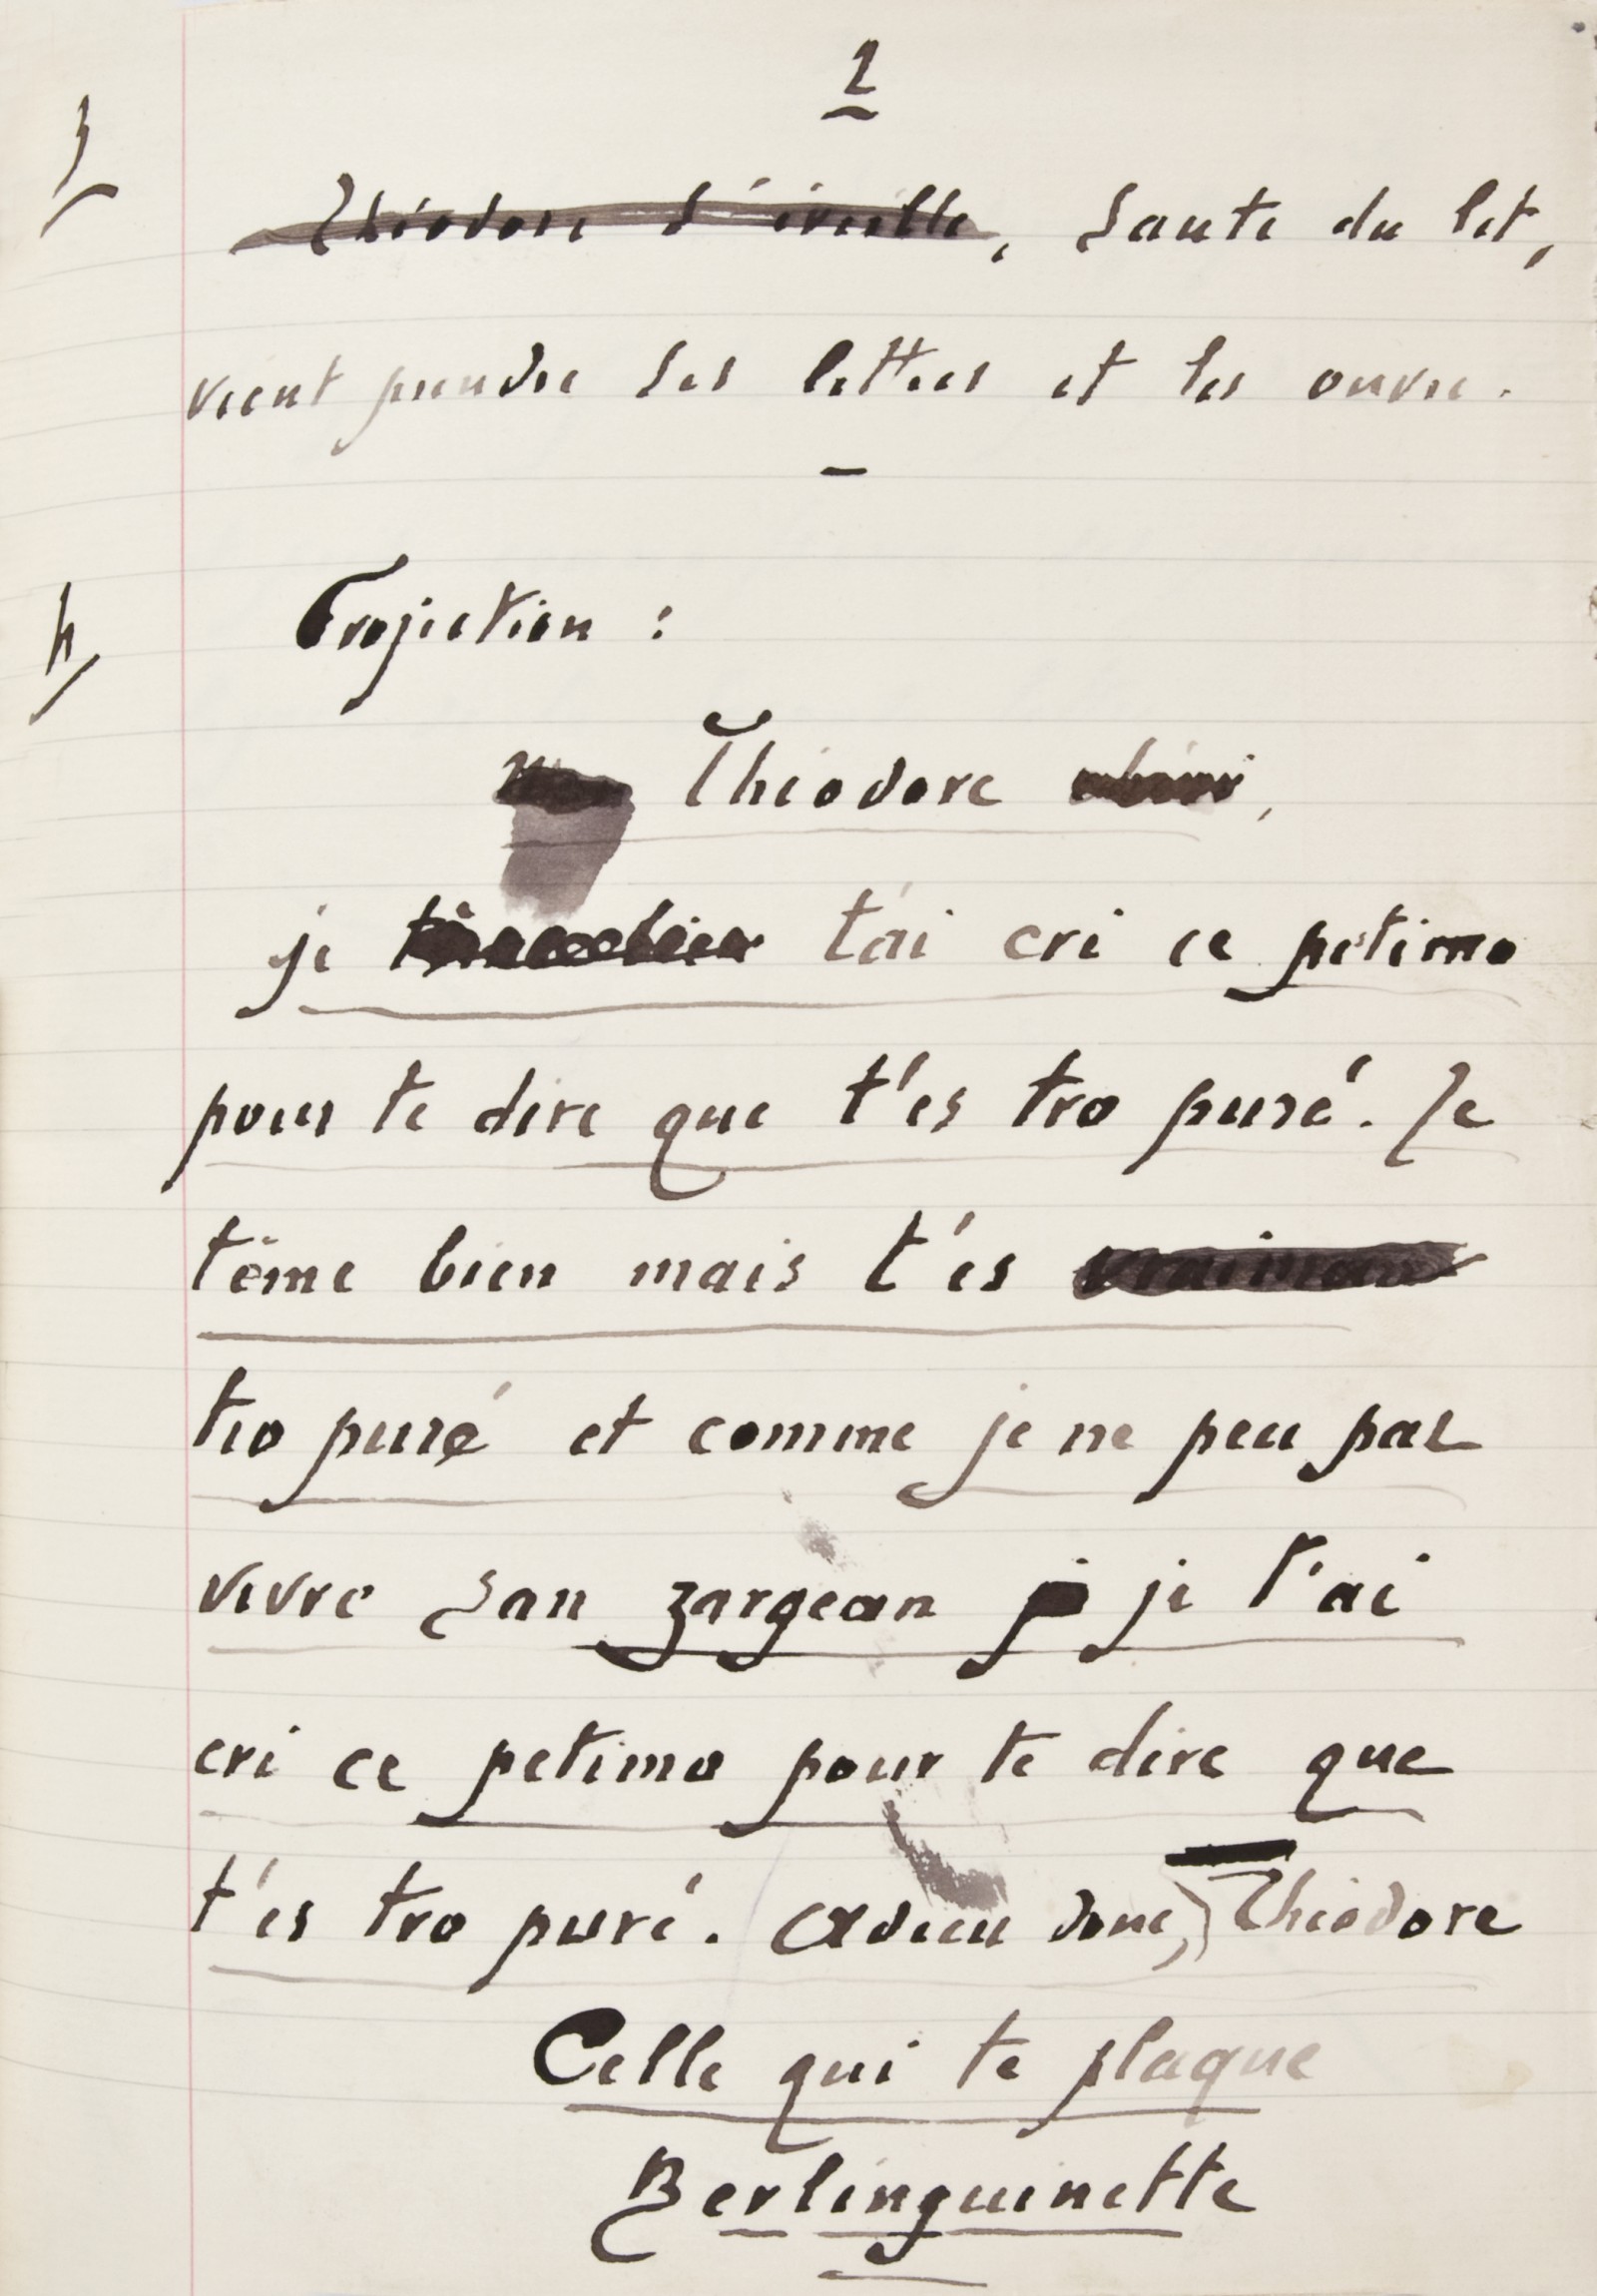 2
3/
Théodore s'éveille, saute du lit,
vient prendre ses lettres et les ouvre.
—
4/
Projection :
Théodore
je t'ai cri ce petimo
pour te dire que t'es tro puré. Je
tême bien mais t'es vraiman
tro puré et comme je ne peu pas
vivre san zargean je t'ai
cri ce petimo pour te dire que
t'es tro puré. Adieu donc, Théodore
Celle qui te plaque
Berlinguinette